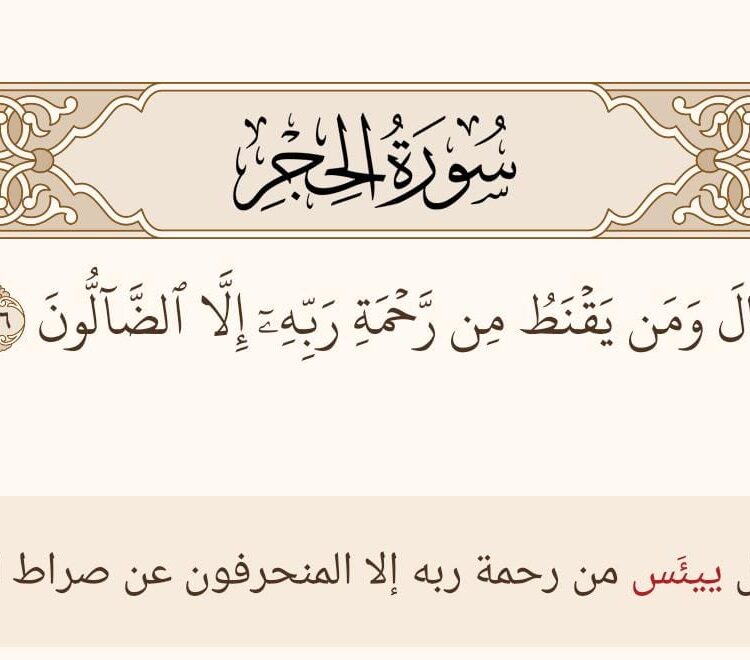 سُورَةُ الحِجْرِ
وَمَن يَقْنَطُ مِن رَّحْمَةِ رَبِّهِۦٓ إِلَّا ٱلضَّآلُّونَ
ييئَس من رحمة ربه إلا المنحرفون عن صراط